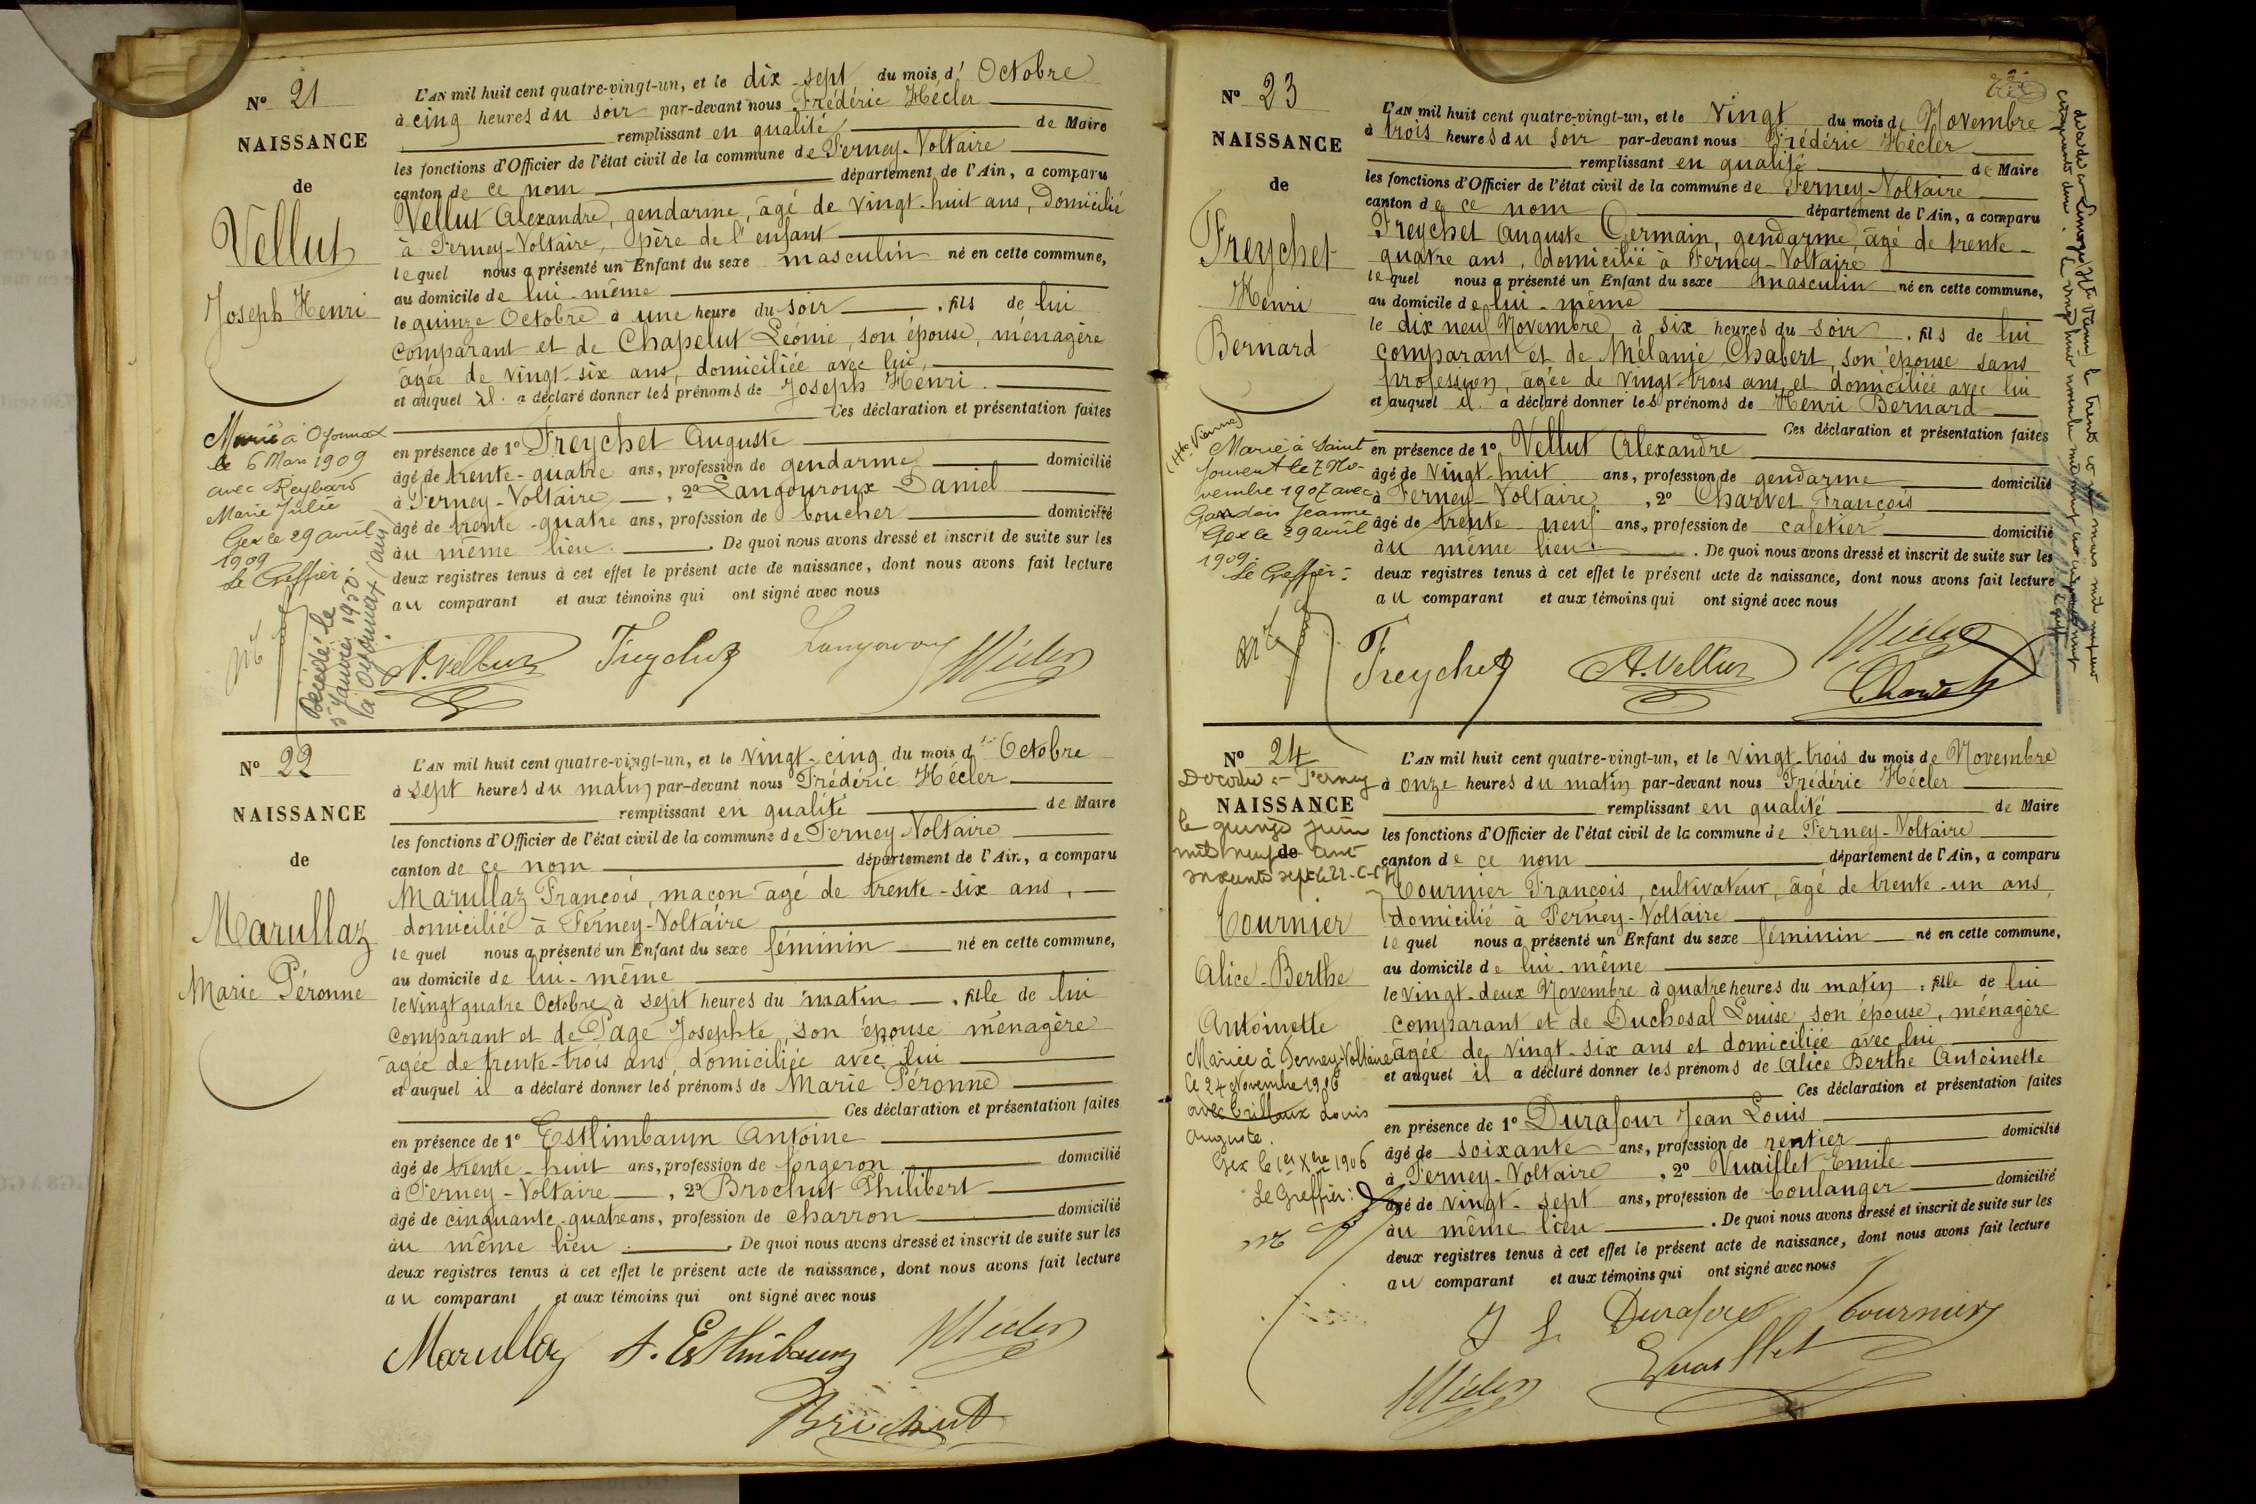 N° 21
NAISSANCE
de
Vellut
Joseph Henri
Marié à Oyonnax
le 6 Mars 1909
avec Reybard
Marie Julie
Gex le 29 avril
1909
Le Greffier:
Décédé le
5 Janvier 1950
à Oyonnax (Ain)
L'AN mil huit cent quatre-vingt-un, et le dix-sept du mois d' Octobre
à cinq heures du soir par-devant nous Frédéric Hécler
remplissant en qualité de Maire
les fonctions d'Officier de l'état civil de la commune de Ferney-Voltaire
canton de ce nom département de l'Ain, a comparu
Vellut Alexandre, gendarme, âgé de vingt-huit ans, Domicilié
à Ferney-Voltaire, père de l'enfant
lequel nous a présenté un Enfant du sexe masculin né en cette commune,
au domicile de lui-même
le quinze Octobre à une heure du soir, fils de lui
comparant et de Chapelut Léonie, son épouse, ménagère
âgée de vingt-six ans, domiciliée avec lui,
et auquel il a déclaré donner les prénoms de Joseph Henri.
Ces déclaration et présentation faites
en présence de 1° Freychet Auguste
âgé de trente-quatre ans, profession de gendarme domicilié
à Ferney-Voltaire, 2° Langouroux Daniel
âgé de trente-quatre ans, profession de boucher domicilié
au même lieu. De quoi nous avons dressé et inscrit de suite sur les
deux registres tenus à cet effet le présent acte de naissance, dont nous avons fait lecture
au comparant et aux témoins qui ont signé avec nous
A. Vellut Freychet Langouroux Hécler
N° 22
NAISSANCE
de
Marullaz
Marie Péronne
L'AN mil huit cent quatre-vingt-un, et le vingt-cinq du mois d' Octobre
à sept heures du matin par-devant nous Frédéric Hécler
remplissant en qualité de Maire
les fonctions d'Officier de l'état civil de la commune de Ferney Voltaire
canton de ce nom département de l'Ain, a comparu
Marullaz François, maçon âgé de trente-six ans,
domicilié à Ferney-Voltaire
lequel nous a présenté un Enfant du sexe féminin né en cette commune,
au domicile de lui-même
le vingt quatre Octobre à sept heures du matin, fille de lui
comparant et de Page Josephte, son épouse ménagère
âgée de trente-trois ans, domiciliée avec lui
et auquel il a déclaré donner les prénoms de Marie Péronne
Ces déclaration et présentation faites
en présence de 1° Estlimbaum Antoine
âgé de trente-huit ans, profession de forgeron domicilié
à Ferney-Voltaire, 2° Brochut Philibert
âgé de cinquante-quatre ans, profession de charron domicilié
au même lieu. De quoi nous avons dressé et inscrit de suite sur les
deux registres tenus à cet effet le présent acte de naissance, dont nous avons fait lecture
au comparant et aux témoins qui ont signé avec nous
Marullaz A. Estlimbaum Hécler
Brochut
N° 23
NAISSANCE
de
Freychet
Henri
Bernard
Marié à Saint
Jouvent le 7 No-
vembre 1907 avec
Gandois Jeanne
(Hte Vienne)
Gex le 29 avril
1909.
Le Greffier:
L'AN mil huit cent quatre-vingt-un, et le vingt du mois de Novembre
à trois heures du soir par-devant nous Frédéric Hécler
remplissant en qualité de Maire
les fonctions d'Officier de l'état civil de la commune de Ferney-Voltaire
canton de ce nom département de l'Ain, a comparu
Freychet Auguste Germain, gendarme, âgé de trente-
quatre ans, domicilié à Ferney-Voltaire
lequel nous a présenté un Enfant du sexe masculin né en cette commune,
au domicile de lui-même
le dix neuf Novembre à six heures du soir, fils de lui
comparant et de Mélanie Chabert, son épouse sans
profession, âgée de vingt-trois ans et domiciliée avec lui
et auquel il a déclaré donner les prénoms de Henri Bernard
Ces déclaration et présentation faites
en présence de 1° Vellut Alexandre
âgé de vingt-huit ans, profession de gendarme domicilié
à Ferney-Voltaire, 2° Charvet François
âgé de trente neuf ans, profession de cafetier domicilié
au même lieu. De quoi nous avons dressé et inscrit de suite sur les
deux registres tenus à cet effet le présent acte de naissance, dont nous avons fait lecture
au comparant et aux témoins qui ont signé avec nous
Freychet A. Vellut Hécler
Charvet
N° 24
Décédée à Ferney
NAISSANCE
le quinze juin
mil neuf cent
de
soixante sept
Tournier
Alice-Berthe
Antoinette
Mariée à Ferney-Voltaire
le 24 Novembre 1906
avec Louis
Auguste.
Gex le 1er Xbre 1906
Le Greffier:
L'AN mil huit cent quatre-vingt-un, et le vingt-trois du mois de Novembre
à onze heures du matin par-devant nous Frédéric Hécler
remplissant en qualité de Maire
les fonctions d'Officier de l'état civil de la commune de Ferney-Voltaire
canton de ce nom département de l'Ain, a comparu
Tournier François, cultivateur, âgé de trente-un ans,
domicilié à Ferney-Voltaire
lequel nous a présenté un Enfant du sexe féminin né en cette commune,
au domicile de lui-même
le vingt-deux Novembre à quatre heures du matin, fille de lui
comparant et de Duchosal Louise son épouse, ménagère
âgée de vingt-six ans et domiciliée avec lui
et auquel il a déclaré donner les prénoms de Alice Berthe Antoinette
Ces déclaration et présentation faites
en présence de 1° Durafour Jean Louis
âgé de soixante ans, profession de rentier domicilié
à Ferney-Voltaire, 2° Vuaillet Emile
âgé de vingt-sept ans, profession de boulanger domicilié
au même lieu. De quoi nous avons dressé et inscrit de suite sur les
deux registres tenus à cet effet le présent acte de naissance, dont nous avons fait lecture
au comparant et aux témoins qui ont signé avec nous
J L Durafour Tournier
Hécler E Vuaillet